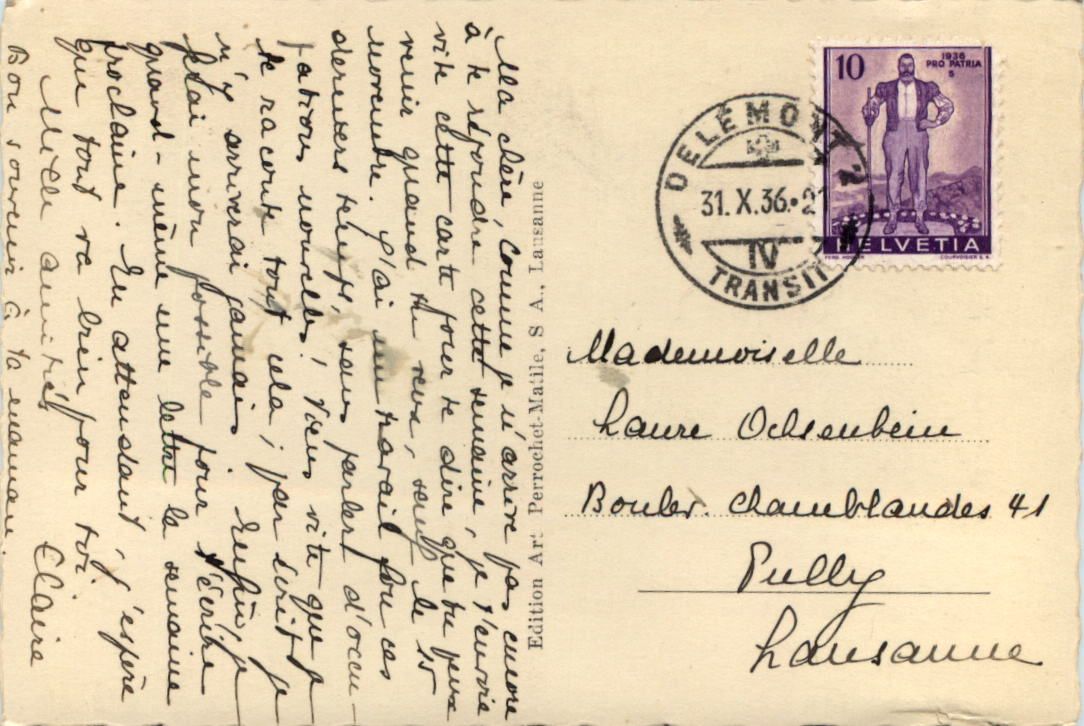 Ma chère, Comme je n'arrive pas encore
à te répondre cette semaine, je t'envoie
vite cette carte pour te dire que tu peux
venir quand tu veux, sauf le 15
novembre. J'ai un travail fou ces
derniers temps, sans parler d'occu-
pations nouvelles! Viens vite que je
te raconte tout cela; par écrit je
n'y arriverai jamais. Enfin, je
ferai mon possible pour t'écrire
quand-même une lettre la semaine
prochaine. En attendant, j'espère
que tout va bien pour toi.
Mille amitiés
Claire
Bon souvenir à ta maman.
Edition Art Perrochet-Matile, S A., Lausanne
DELÉMONT 2
31.X.36.-21
IV
TRANSIT
10
1936
PRO PATRIA
5
HELVETIA
COURVOISIER S.A.
Mademoiselle
Laure Ochsenbein
Boulev. Chamblandes 41
Pully
Lausanne